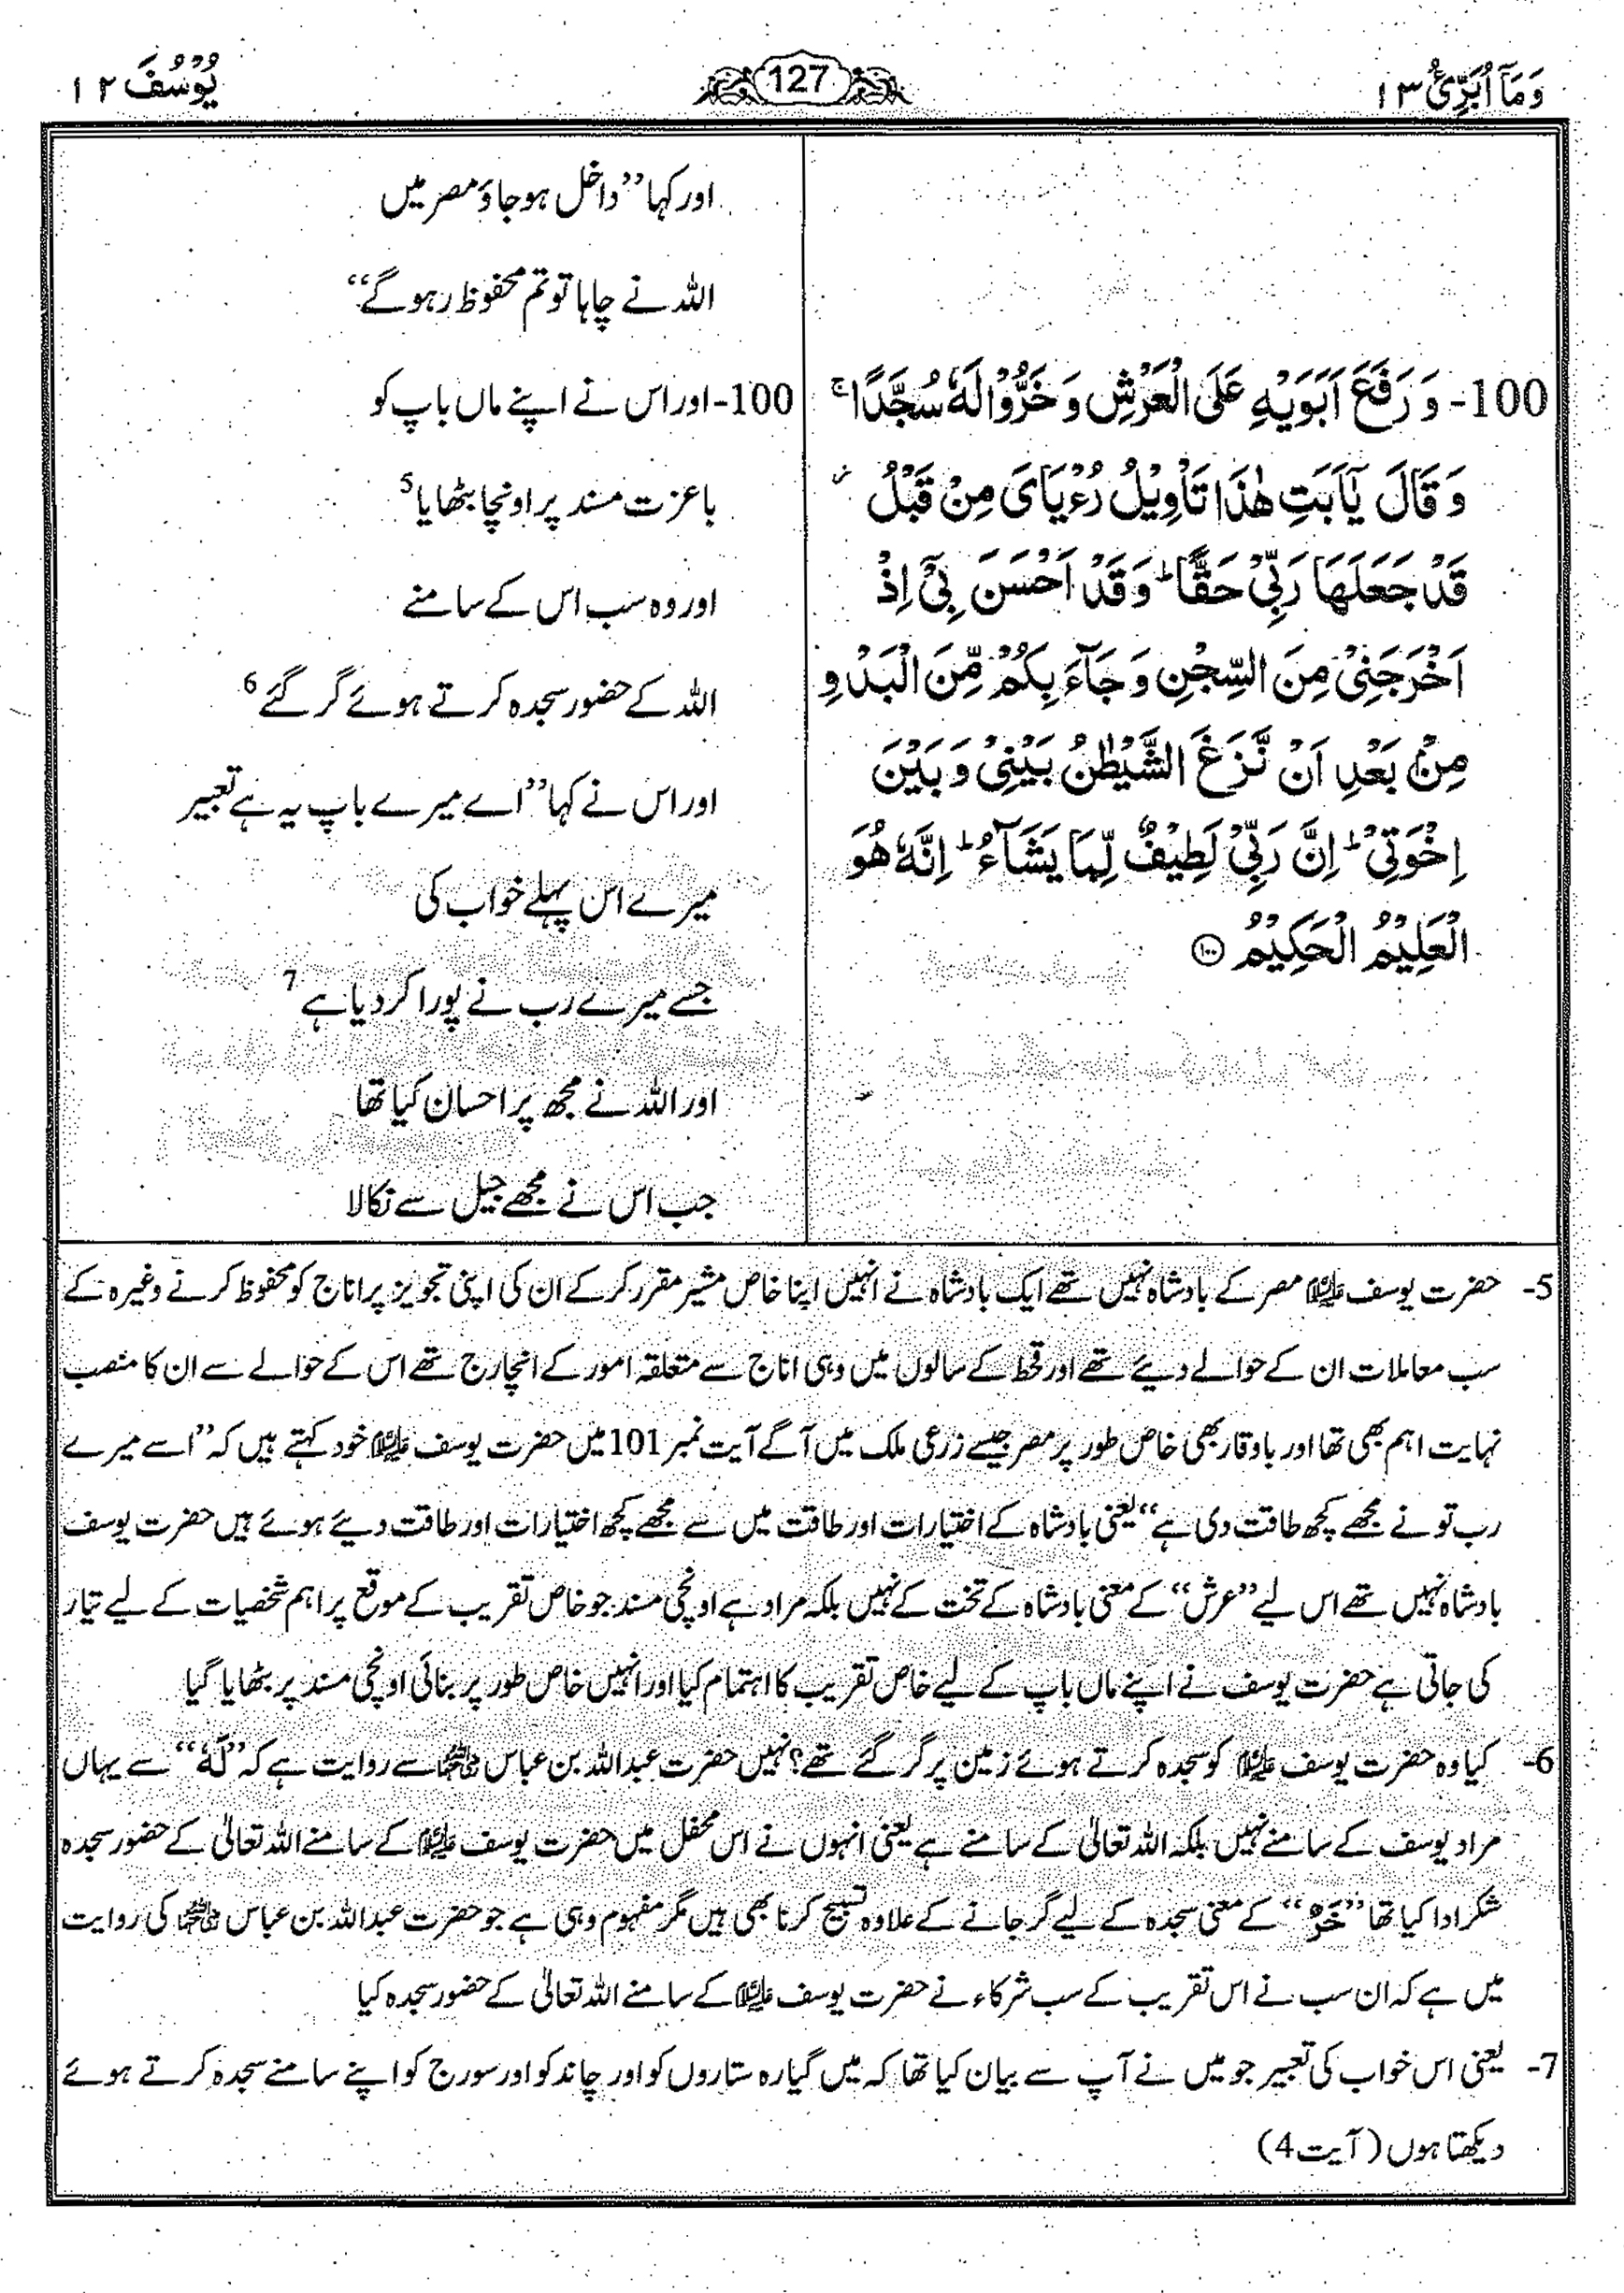 وَمَآ اُبَرِّئُ ١٣
127
يُوْسُفَ ١٢
100- وَ رَفَعَ اَبَوَيْهِ عَلَى الْعَرْشِ وَ خَرُّوْا لَهٗ سُجَّدًا ۚ
وَ قَالَ يٰۤاَبَتِ هٰذَا تَاْوِيْلُ رُءْيَايَ مِنْ قَبْلُ ؗ
قَدْ جَعَلَهَا رَبِّيْ حَقًّا ؕ وَ قَدْ اَحْسَنَ بِيْۤ اِذْ
اَخْرَجَنِيْ مِنَ السِّجْنِ وَ جَآءَ بِكُمْ مِّنَ الْبَدْوِ
مِنْۢ بَعْدِ اَنْ نَّزَغَ الشَّيْطٰنُ بَيْنِيْ وَ بَيْنَ
اِخْوَتِيْ ؕ اِنَّ رَبِّيْ لَطِيْفٌ لِّمَا يَشَآءُ ؕ اِنَّهٗ هُوَ
الْعَلِيْمُ الْحَكِيْمُ ۝۱۰۰
اور کہا ’’داخل ہو جاؤ مصر میں
اللہ نے چاہا تو تم محفوظ رہو گے‘‘
100- اور اس نے اپنے ماں باپ کو
باعزت مسند پر اونچا بٹھایا 5
اور وہ سب اس کے سامنے
اللہ کے حضور سجدہ کرتے ہوئے گر گئے 6
اور اس نے کہا ’’اے میرے باپ یہ ہے تعبیر
میرے اس پہلے خواب کی
جسے میرے رب نے پورا کر دیا ہے 7
اور اللہ نے مجھ پر احسان کیا تھا
جب اس نے مجھے جیل سے نکالا
5- حضرت یوسف علیہ السلام مصر کے بادشاہ نہیں تھے ایک بادشاہ نے انہیں اپنا خاص مشیر مقرر کر کے ان کی اپنی تجویز پر اناج کو محفوظ کرنے وغیرہ کے
سب معاملات ان کے حوالے دیئے تھے اور قحط کے سالوں میں وہی اناج سے متعلقہ امور کے انچارج تھے اس کے حوالے سے ان کا منصب
نہایت اہم بھی تھا اور باوقار بھی خاص طور پر مصر جیسے زرعی ملک میں آگے آیت نمبر 101 میں حضرت یوسف علیہ السلام خود کہتے ہیں کہ ’’اے میرے
رب تو نے مجھے کچھ طاقت دی ہے‘‘ یعنی بادشاہ کے اختیارات اور طاقت میں سے مجھے کچھ اختیارات اور طاقت دیئے ہوئے ہیں حضرت یوسف
بادشاہ نہیں تھے اس لیے ’’عرش‘‘ کے معنی بادشاہ کے تخت کے نہیں بلکہ مراد ہے اونچی مسند جو خاص تقریب کے موقع پر اہم شخصیات کے لیے تیار
کی جاتی ہے حضرت یوسف نے اپنے ماں باپ کے لیے خاص تقریب کا اہتمام کیا اور انہیں خاص طور پر بنائی اونچی مسند پر بٹھایا گیا
6- کیا وہ حضرت یوسف علیہ السلام کو سجدہ کرتے ہوئے زمین پر گر گئے تھے؟ نہیں حضرت عبداللہ بن عباس رضی اللہ عنہما سے روایت ہے کہ ’’لَهٗ‘‘ سے یہاں
مراد یوسف کے سامنے نہیں بلکہ اللہ تعالیٰ کے سامنے ہے یعنی انہوں نے اس محفل میں حضرت یوسف علیہ السلام کے سامنے اللہ تعالیٰ کے حضور سجدہ
شکر ادا کیا تھا ’’خَرَّ‘‘ کے معنی سجدہ کے لیے گر جانے کے علاوہ تسبیح کرنا بھی ہیں مگر مفہوم وہی ہے جو حضرت عبداللہ بن عباس رضی اللہ عنہما کی روایت
میں ہے کہ ان سب نے اس تقریب کے سب شرکاء نے حضرت یوسف علیہ السلام کے سامنے اللہ تعالیٰ کے حضور سجدہ کیا
7- یعنی اس خواب کی تعبیر جو میں نے آپ سے بیان کیا تھا کہ میں گیارہ ستاروں کو اور چاند کو اور سورج کو اپنے سامنے سجدہ کرتے ہوئے
دیکھتا ہوں (آیت 4)